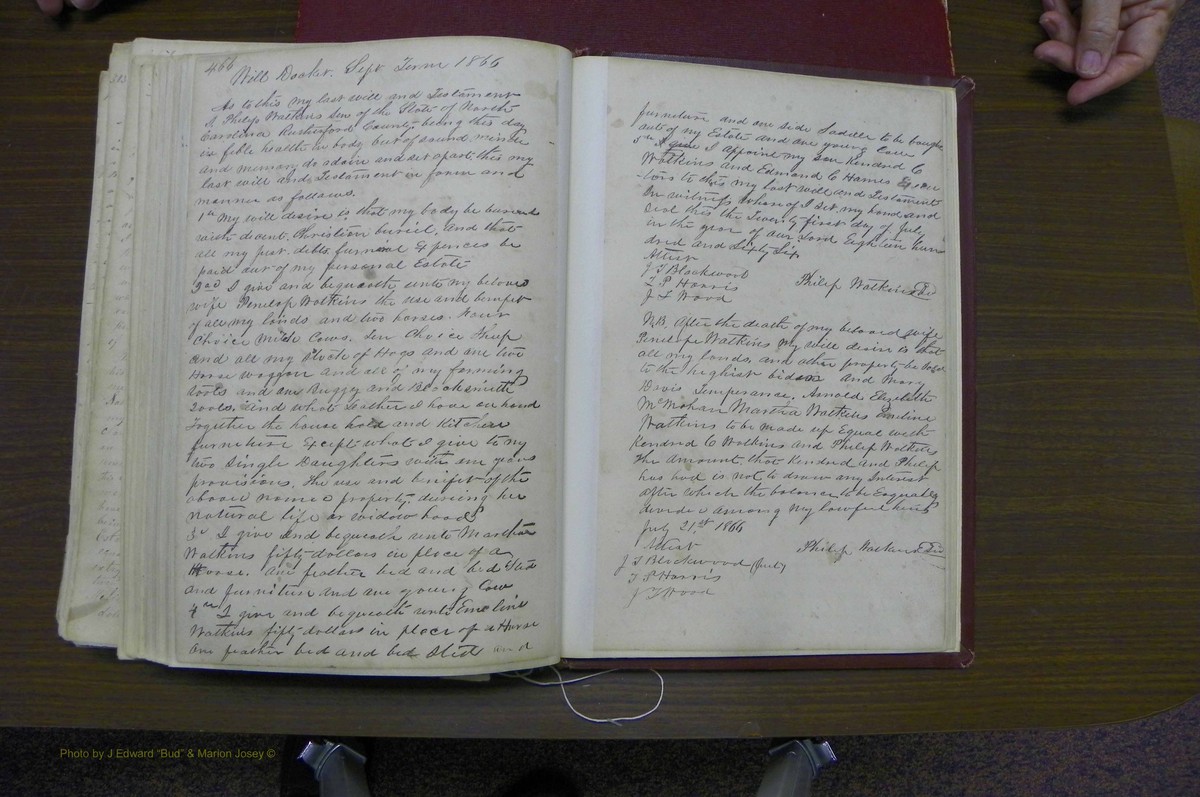 466
Will Docket. Sept Term 1866
As to this my last will and Testament
I Philip Watkins Sen of the State of North
Carolina Rutherford County being this day
in feble health in body but of sound minde
and memory do adain and set apart this my
last will and Testament in form and
manner as follows.
1st My will desire is that my body be buried
with decent. Christian buriel, and that
all my just debts funeral Expences be
paid out of my personal Estate
2nd I give and bequeath unto my beloved
wife Penelop Watkins the use and benifit
of all my lands and two horses. Four
Choice Milch Cows. Ten Choice Sheep
and all my Stock of Hogs and one two
Horse waggon and all of my farming
tools and one Buggy and Blacksmith
Tools, and what leather I have on hand
Together the house hold and Kitchen
furneture Except what I give to my
two Single Daughters with one years
provisions. The use and benefit of the
above named property, dureing her
natural life or widow hood
3d I give and bequeath unto Martha
Watkins fifty dollars in place of a
Horse. One feather bed and bed Sted
and furniture and one young Cow
4th I give and bequeath unto Emeline
Watkins fifty dollars in place of a Horse
One feather bed and bed Sted and
furneture and one side Saddle to be bought
out of my Estate and one young Cow
5th I give I appoint my Son Kendrd C
Watkins and Edmond C Hames Execu
tors to this my last will and Testament
In witness whereof I set my hand and
Seal this the Twenty first day of July
in the year of our Lord Eighteen hun
dred and Sixty Six
Attest
J T Blackwood
T P Harris Philip Watkins
J L Wood
N.B. After the death of my beloved wife
Penelope Watkins my will desire is that
all my lands, and other property be Sold
to the highest bider and Mary
Davis Temperance. Arnold Elizabeth
McMohan Martha Watkins Emeline
Watkins to be made up Equal with
Kendrd C Watkins and Philip Watkins
The amount, that Kendrd and Philip
has had is not to draw any Interest
after which the balance to be Eaqually
divided among my lawful heirs
July 21st 1866
Attest Philip Watkins
J T Blackwood (Jurt)
T P Harris
J L Wood
Photo by J Edward "Bud" & Marion Josey ©